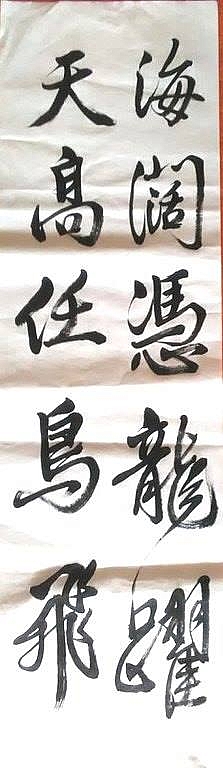 海闊憑龍躍
天高任鳥飛